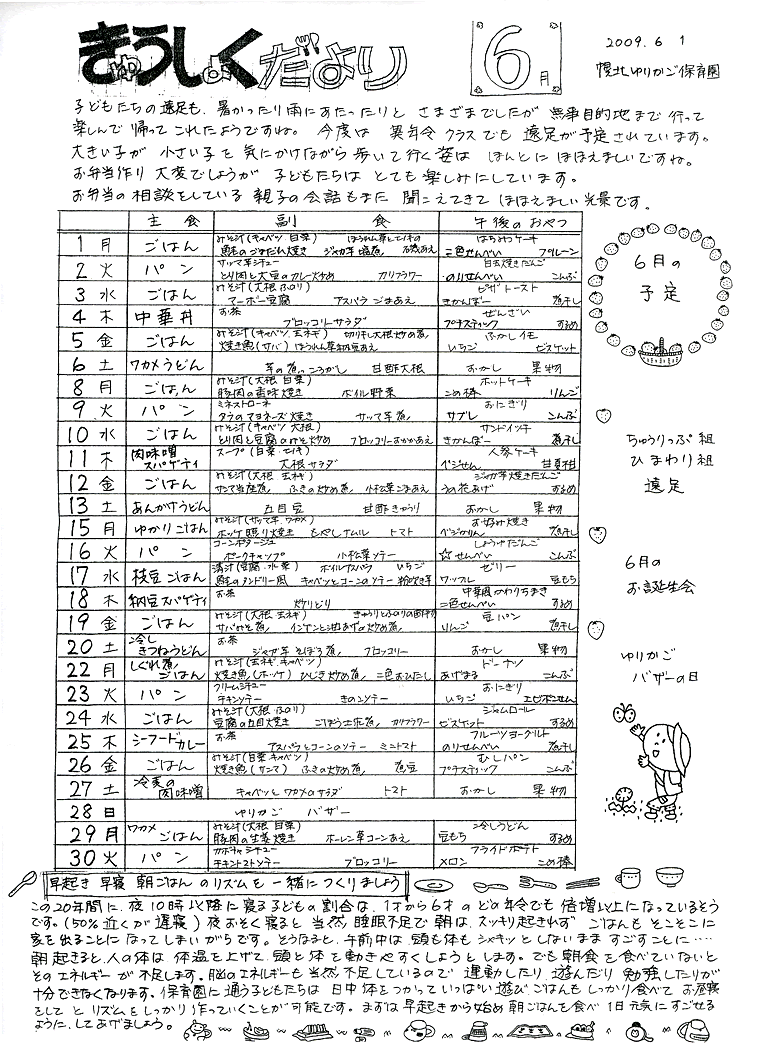 きゅうしょくだより
6月
2009.6 1
幌北ゆりかご保育園
子どもたちの遠足も、暑かったり雨にあたったりと さまざまでしたが 無事目的地まで 行って
楽しんで 帰って これたようですね。 今度は 異年令 クラス でも 遠足が予定されています。
大きい子が 小さい子 を 気にかけながら 歩いて 行く 姿は ほんとに ほほえましいですね。
お弁当作り 大変でしょうが 子どもたちは とても 楽しみにしています。
お弁当の 相談をしている 親子の会話もまた 聞こえてきて ほほえましい 光景です。
主 食 副 食 午後のおやつ
1 月 ごはん みそ汁(キャベツ 白菜) はちみつケーキ
二色せんべい プルーン
2 火 パン サッマ芋シチュー
とり肉と大豆のカレー炒め カリフラワー のりせんべい こんぶ
3 水 ごはん みそ汁(大根 ふのり) ピザトースト
マーボー豆腐 アスパラ ごまあえ きかんぼー 煮干し
4 木 中華丼 お茶 ぜんざい
ブロッコリーサラダ プチスティック するめ
5 金 ごはん みそ汁(キャベツ、玉ネギ) 切り干し大根炒め煮 ふかしイモ
焼き魚(サバ) ほうれん草納豆あえ いちご ビスケット
6 土 ワカメうどん 芋の煮っころがし 甘酢大根 おかし 果物
8 月 ごはん みそ汁(大根 白菜) ホットケーキ
豚肉の香味焼き ボイル野菜 こめ棒 りんご
9 火 パン ミネストローネ おにぎり
タラのマヨネーズ焼き サッマ芋煮 サブレ こんぶ
10 水 ごはん みそ汁(キャベツ 大根) サンドイッチ
とり肉と豆腐のみそ炒め ブロッコリーおかかあえ きかんぼー 煮干し
11 木 肉味噌スパゲティ スープ(白菜・モイキ) 人参ケーキ
大根サラダ ベジせん 甘夏柑
12 金 ごはん みそ汁(大根、玉ネギ) ジャガ芋焼きだんご
サンマ生姜煮 ふきの炒め煮 小松菜ごまあえ うの花あげ するめ
13 土 あんかけうどん 五目豆 甘酢きゅうり おかし 果物
15 月 ゆかりごはん みそ汁(サッマ芋、ワカメ) お好み焼き
ホッケ照り焼き もやしナムル トマト ベジかりん 煮干し
16 火 パン コーンポタージュ しょうゆだんご
ポークチャップ 小松菜ソテー ☆せんべい こんぶ
17 水 枝豆ごはん 清汁(豆腐 水菜) ボイルアスパラ いちご ゼリー
鮭のタンドリー風 キャベツとコーンのソテー 粉吹き芋 ワッフル 豆もち
18 木 納豆スパゲティ お茶 中華風かわりちまき
炒りどり 二色せんべい するめ
19 金 ごはん みそ汁(大根 玉ネギ) 豆パン
サバみそ煮 インゲンと油あげの炒め煮 りんご 煮干し
20 土 冷しきつねうどん お茶
ジャガ芋 そぼろ煮 ブロッコリー おかし 果物
22 月 しぐれ煮ごはん みそ汁(玉ネギ、キャベツ) ドーナツ
焼き魚(ホッケ) ひじき炒め煮 二色おひたし あげまる こんぶ
23 火 パン クリームシチュー おにぎり
チキンソテー きのこソテー いちご エビポンせん
24 水 ごはん みそ汁(大根・ふのり) ジャムロール
豆腐の五目焼き ごぼう土佐煮 カリフラワー ビスケット するめ
25 木 シーフードカレー お茶 フルーツヨーグルト
アスパラとコーンのソテー ミニトマト のりせんべい 煮干し
26 金 ごはん みそ汁(白菜 キャベツ) むしパン
焼き魚(サンマ) ふきの炒め煮 煮豆 プチスティック こんぶ
27 土 冷麦の肉味噌 キャベツとワカメのサラダ トマト おかし 果物
28 日 ゆりかご バザー
29 月 ワカメごはん みそ汁(大根 白菜) 冷しうどん
豚肉の生姜焼き ホーレン草コーンあえ 豆もち するめ
30 火 パン カボチャシチュー フライドポテト
チキントマトソテー ブロッコリー メロン こめ棒
6月の
予定
ちゅうりっぷ組
ひまわり組
遠足
6月の
お誕生会
ゆりかご
バザーの日
早起き 早寝 朝ごはん のリズムを 一緒につくりましょう
この20年間に、夜10時以降に寝る子どもの割合は、1才から6才のどの年令でも 倍増以上になっているそう
です。(50%近くが遅寝) 夜おそく寝ると 当然、睡眠不足で朝は、スッキリ起きれず ごはんも そこそこに
家を出ることに なってしまいがちです。そうなると、午前中は 頭も体も シャキッとしないまま すごすことに‥‥
朝起きると、人の体は 体温を上げて、頭と体を動きやすくしようとします。でも朝食を食べていないと
そのエネルギーが不足します。脳のエネルギーも当然不足しているので 運動したり、遊んだり 勉強したりが
十分できなくなります。保育園に通う子どもたちは 日中 体をつかっていっぱい遊び、ごはんもしっかり食べて お昼寝
をして と リズムをしっかり作っていくことが可能です。まずは早起きから始め 朝ごはんを食べ 1日元気にすごせる
ように、してあげましょう。